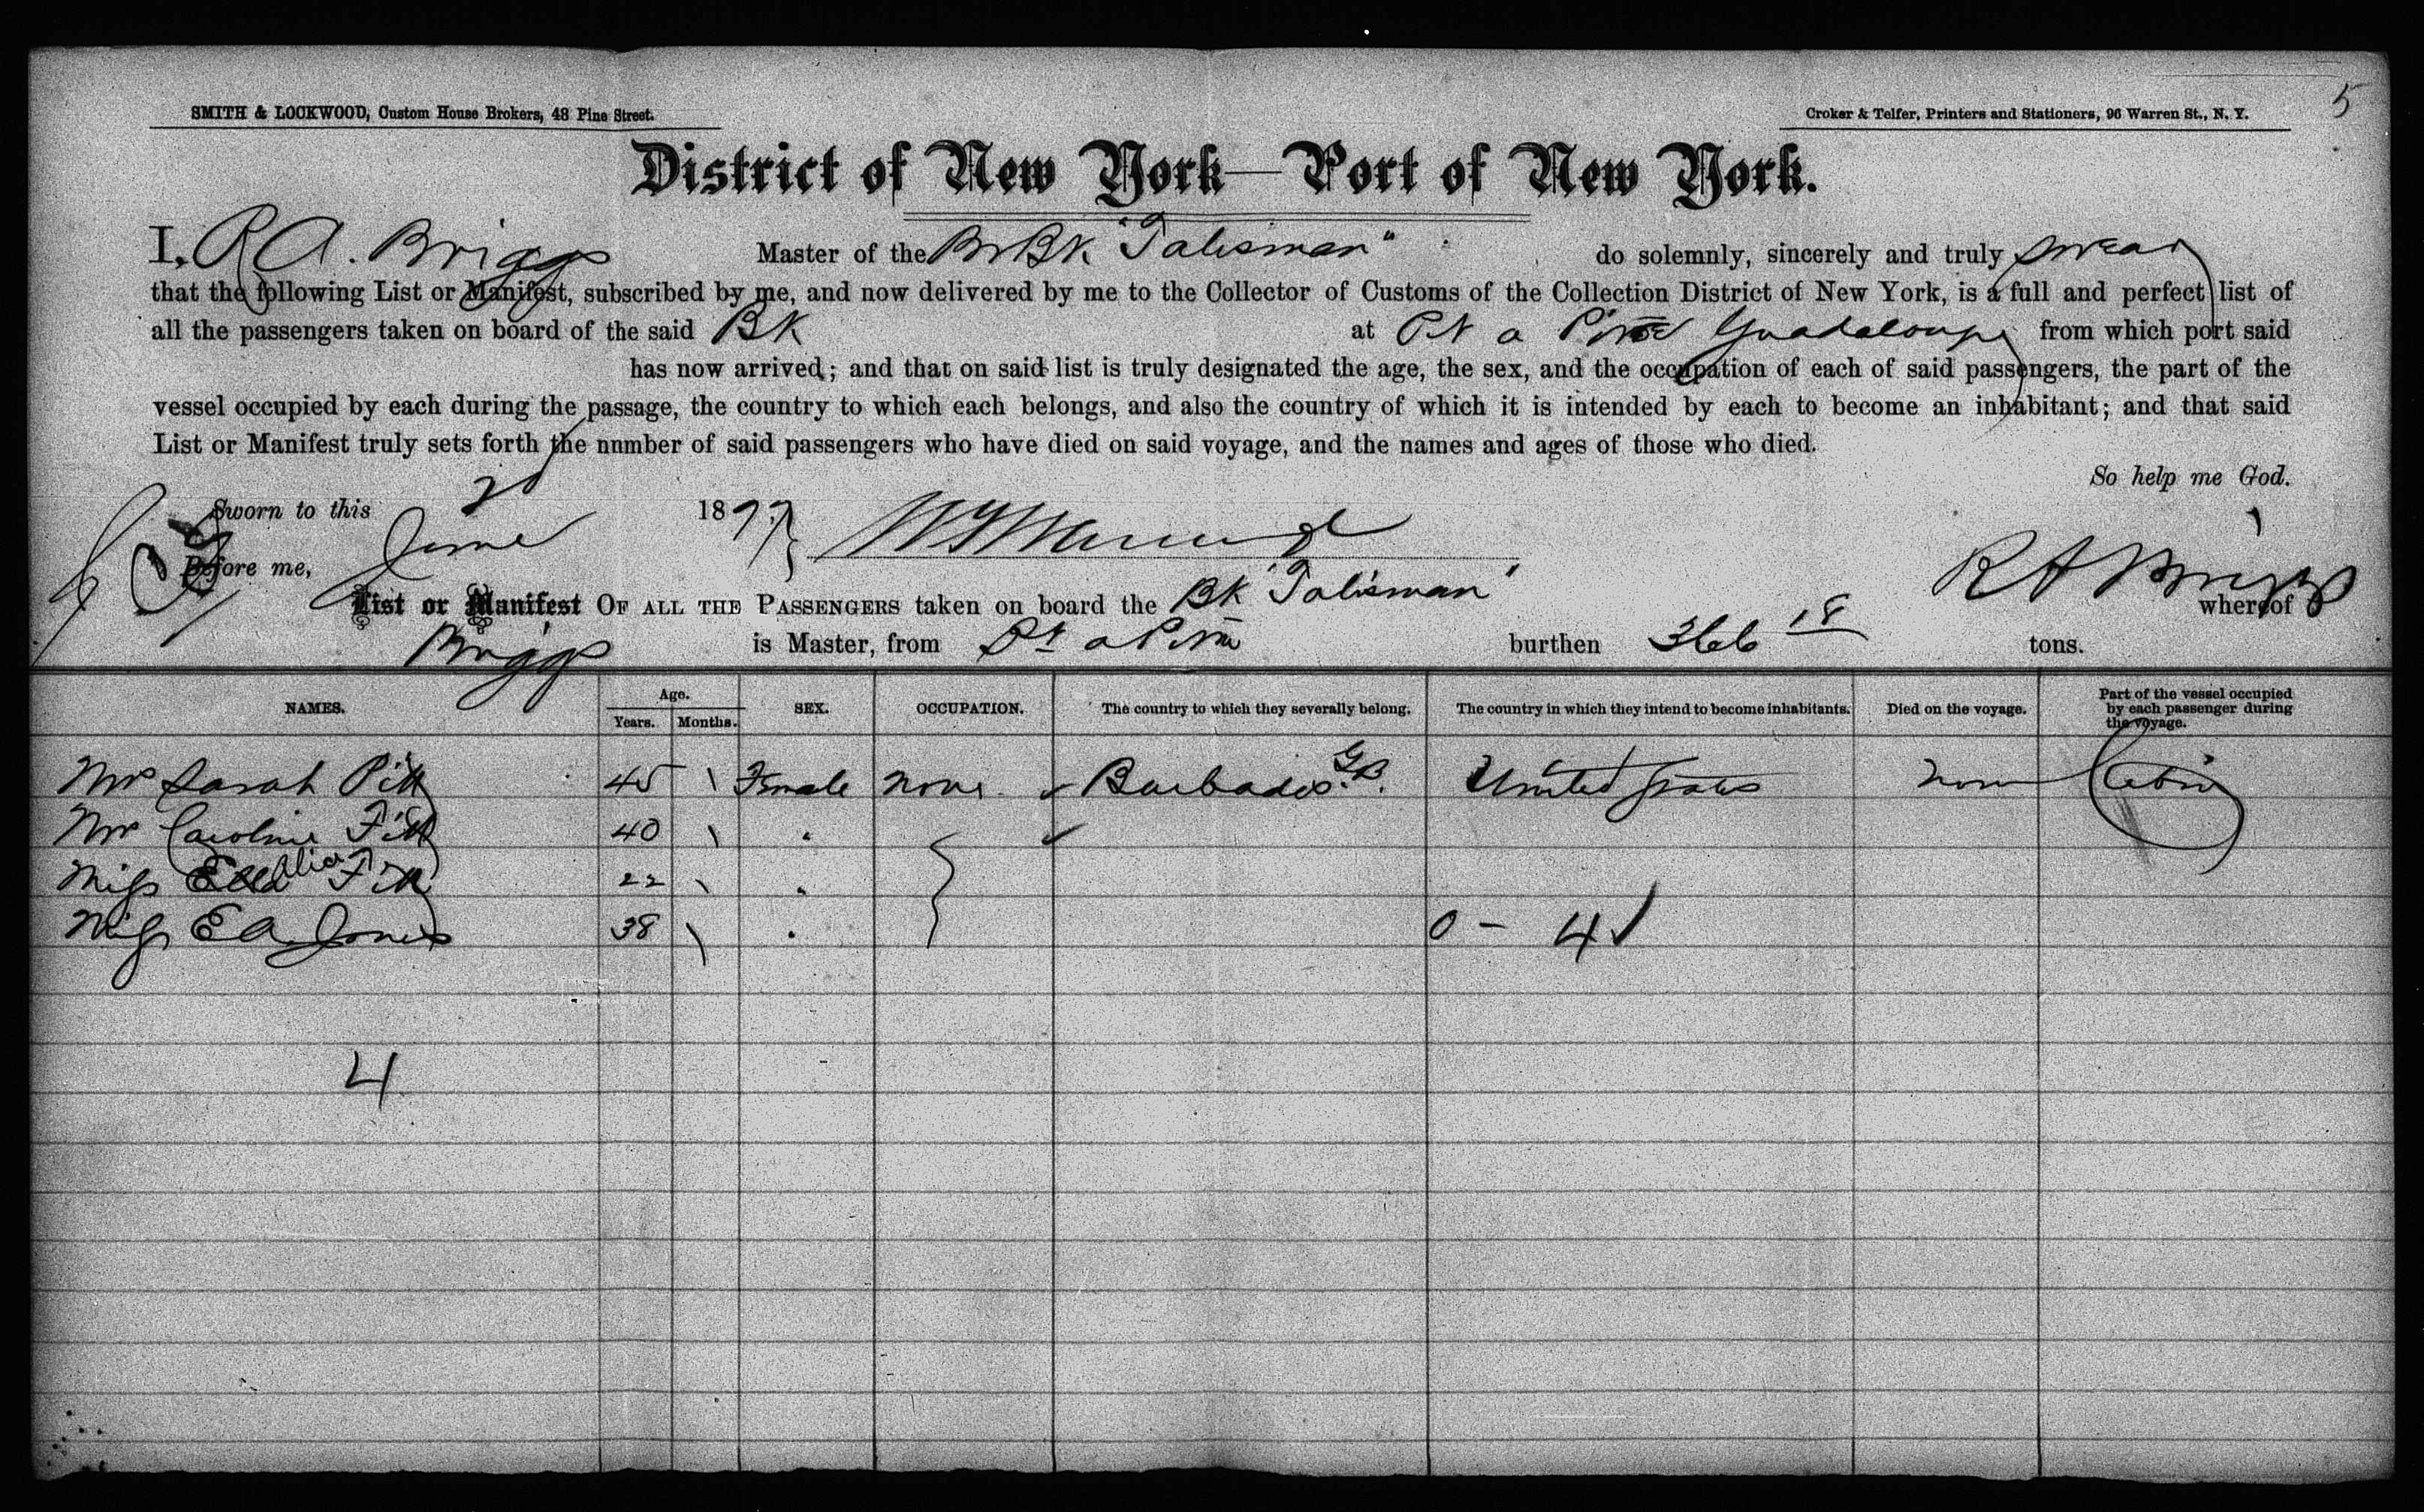 5
SMITH & LOCKWOOD, Custom House Brokers, 48 Pine Street.
Croker & Telfer, Printers and Stationers, 96 Warren St., N. Y.
District of New York—Port of New York.
I, R A. Briggs Master of the Br Bk "Talisman" do solemnly, sincerely and truly swear
that the following List or Manifest, subscribed by me, and now delivered by me to the Collector of Customs of the Collection District of New York, is a full and perfect list of
all the passengers taken on board of the said Bk at Pt a Pitre Guadaloupe from which port said
has now arrived; and that on said list is truly designated the age, the sex, and the occupation of each of said passengers, the part of the
vessel occupied by each during the passage, the country to which each belongs, and also the country of which it is intended by each to become an inhabitant; and that said
List or Manifest truly sets forth the number of said passengers who have died on said voyage, and the names and ages of those who died.
So help me God.
Sworn to this 1877
June
Before me,
R A Briggs
List or Manifest OF ALL THE PASSENGERS taken on board the Bk "Talisman" whereof
Briggs is Master, from Pt a Pitre burthen 366 18 tons.
NAMES. Age. Years. Months. SEX. OCCUPATION. The country to which they severally belong. The country in which they intend to become inhabitants. Died on the voyage. Part of the vessel occupied by each passenger during the voyage.
Mrs Sarah Pitt 45 Female None Barbados G.B. United States None Cabin
Mrs Caroline 40 "
Miss Alice 22 "
Miss E A Jones 38 " 0 - 4 ✓
4